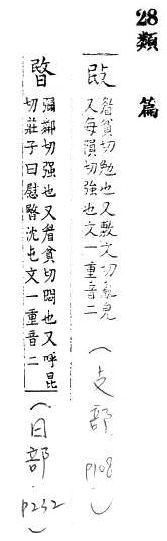 28類篇
敃
眉貧切勉也又敷文切亂皃
又每隕切強也文一重音二
(攴部 p108)
暋
彌鄰切强也又眉貧切悶也又呼昆
切莊子曰慰暋沈屯文一重音二
(日部 p232)